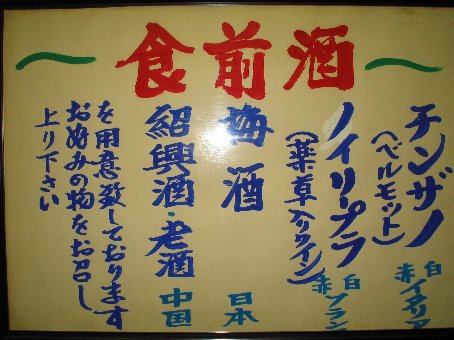 食前酒
チンザノ
(ベルモット)
白
赤
イタリア
ノイリープラ
(薬草入りワイン)
白
赤
フランス
梅酒
日本
紹興酒・老酒
中国
を用意致しております
お好みの物をお召し
上り下さい